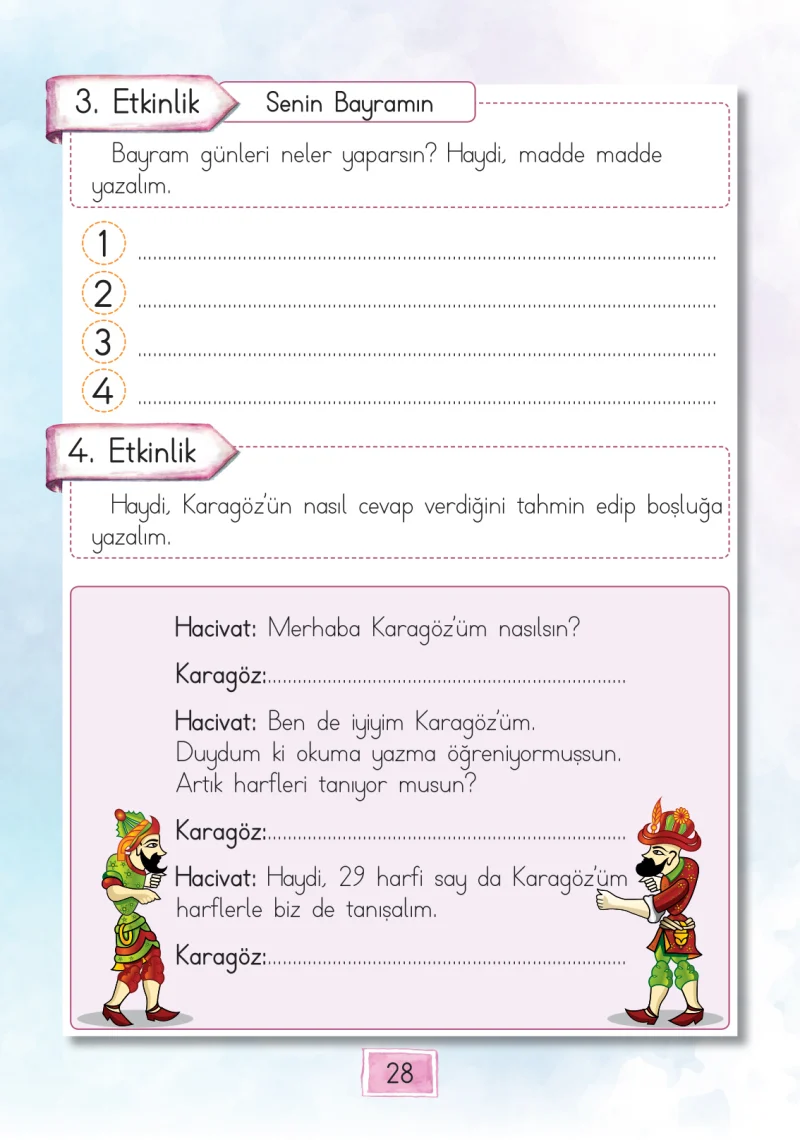 3. Etkinlik
Senin Bayramın
Bayram günleri neler yaparsın? Haydi, madde madde
yazalım.
1 ........................................................................
2 ........................................................................
3 ........................................................................
4 ........................................................................
4. Etkinlik
Haydi, Karagöz'ün nasıl cevap verdiğini tahmin edip boşluğa
yazalım.
Hacivat: Merhaba Karagöz'üm nasılsın?
Karagöz:........................................................................
Hacivat: Ben de iyiyim Karagöz'üm.
Duydum ki okuma yazma öğreniyormuşsun.
Artık harfleri tanıyor musun?
Karagöz:........................................................................
Hacivat: Haydi, 29 harfi say da Karagöz'üm
harflerle biz de tanışalım.
Karagöz:........................................................................
28